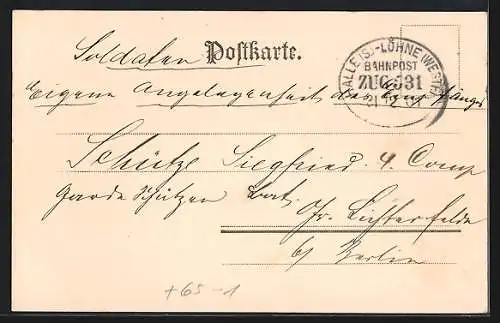 Soldaten Postkarte.
HALLE (S.)-LÖHNE (WESTF.)
BAHNPOST
ZUG 531
Eigene Angelegenheit des Empfängers
Schütze Siegfried, 4. Comp
Garde Schützen Bat.
Gr. Lichterfelde
b/ Berlin
+65-1